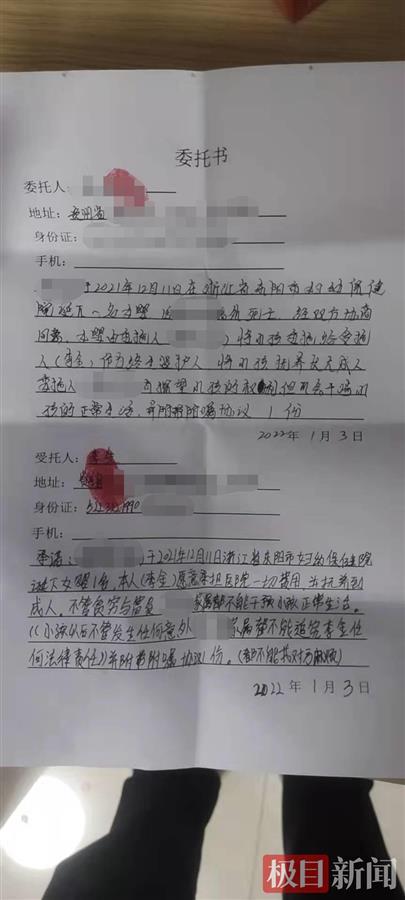 委托书
委托人:
地址: 贵州省
身份证:
手机:
于2021年12月11日在浙江省东阳市妇幼保健
院诞下一名女婴 经双方协商
同意, 女婴由委托人 将小孩委托给受托
人(李全)作为终身监护人 将小孩抚养长大成人
委托人 有探望小孩的权利但不会干涉小
孩的正常生活 并附有附嘱协议 1 份
2022年 1月 3日
受托人: 李全
地址:
身份证: 522 1990
手机:
承诺: 于2021年12月11日浙江省东阳市妇幼保健院
诞下女婴1名. 本人(李全)愿意承担医院一切费用 并抚养到
成人. 不管贫穷与富贵 家属都不能干预小孩正常生活.
((小孩以后不管发生任何意外 家属都不能追究李全任
何法律责任))并附带附嘱协议1份. (都不能找对方麻烦)
2022年 1月 3日
极目新闻